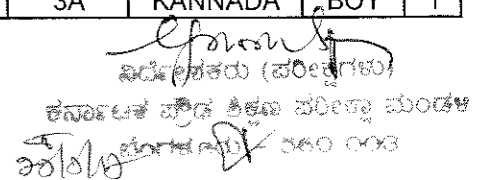 3A KANNADA BOY 1
ನಿರ್ದೇಶಕರು (ಪರೀಕ್ಷೆಗಳು)
ಕರ್ನಾಟಕ ಪ್ರೌಢ ಶಿಕ್ಷಣ ಪರೀಕ್ಷಾ ಮಂಡಳಿ
ಬೆಂಗಳೂರು - 560 003